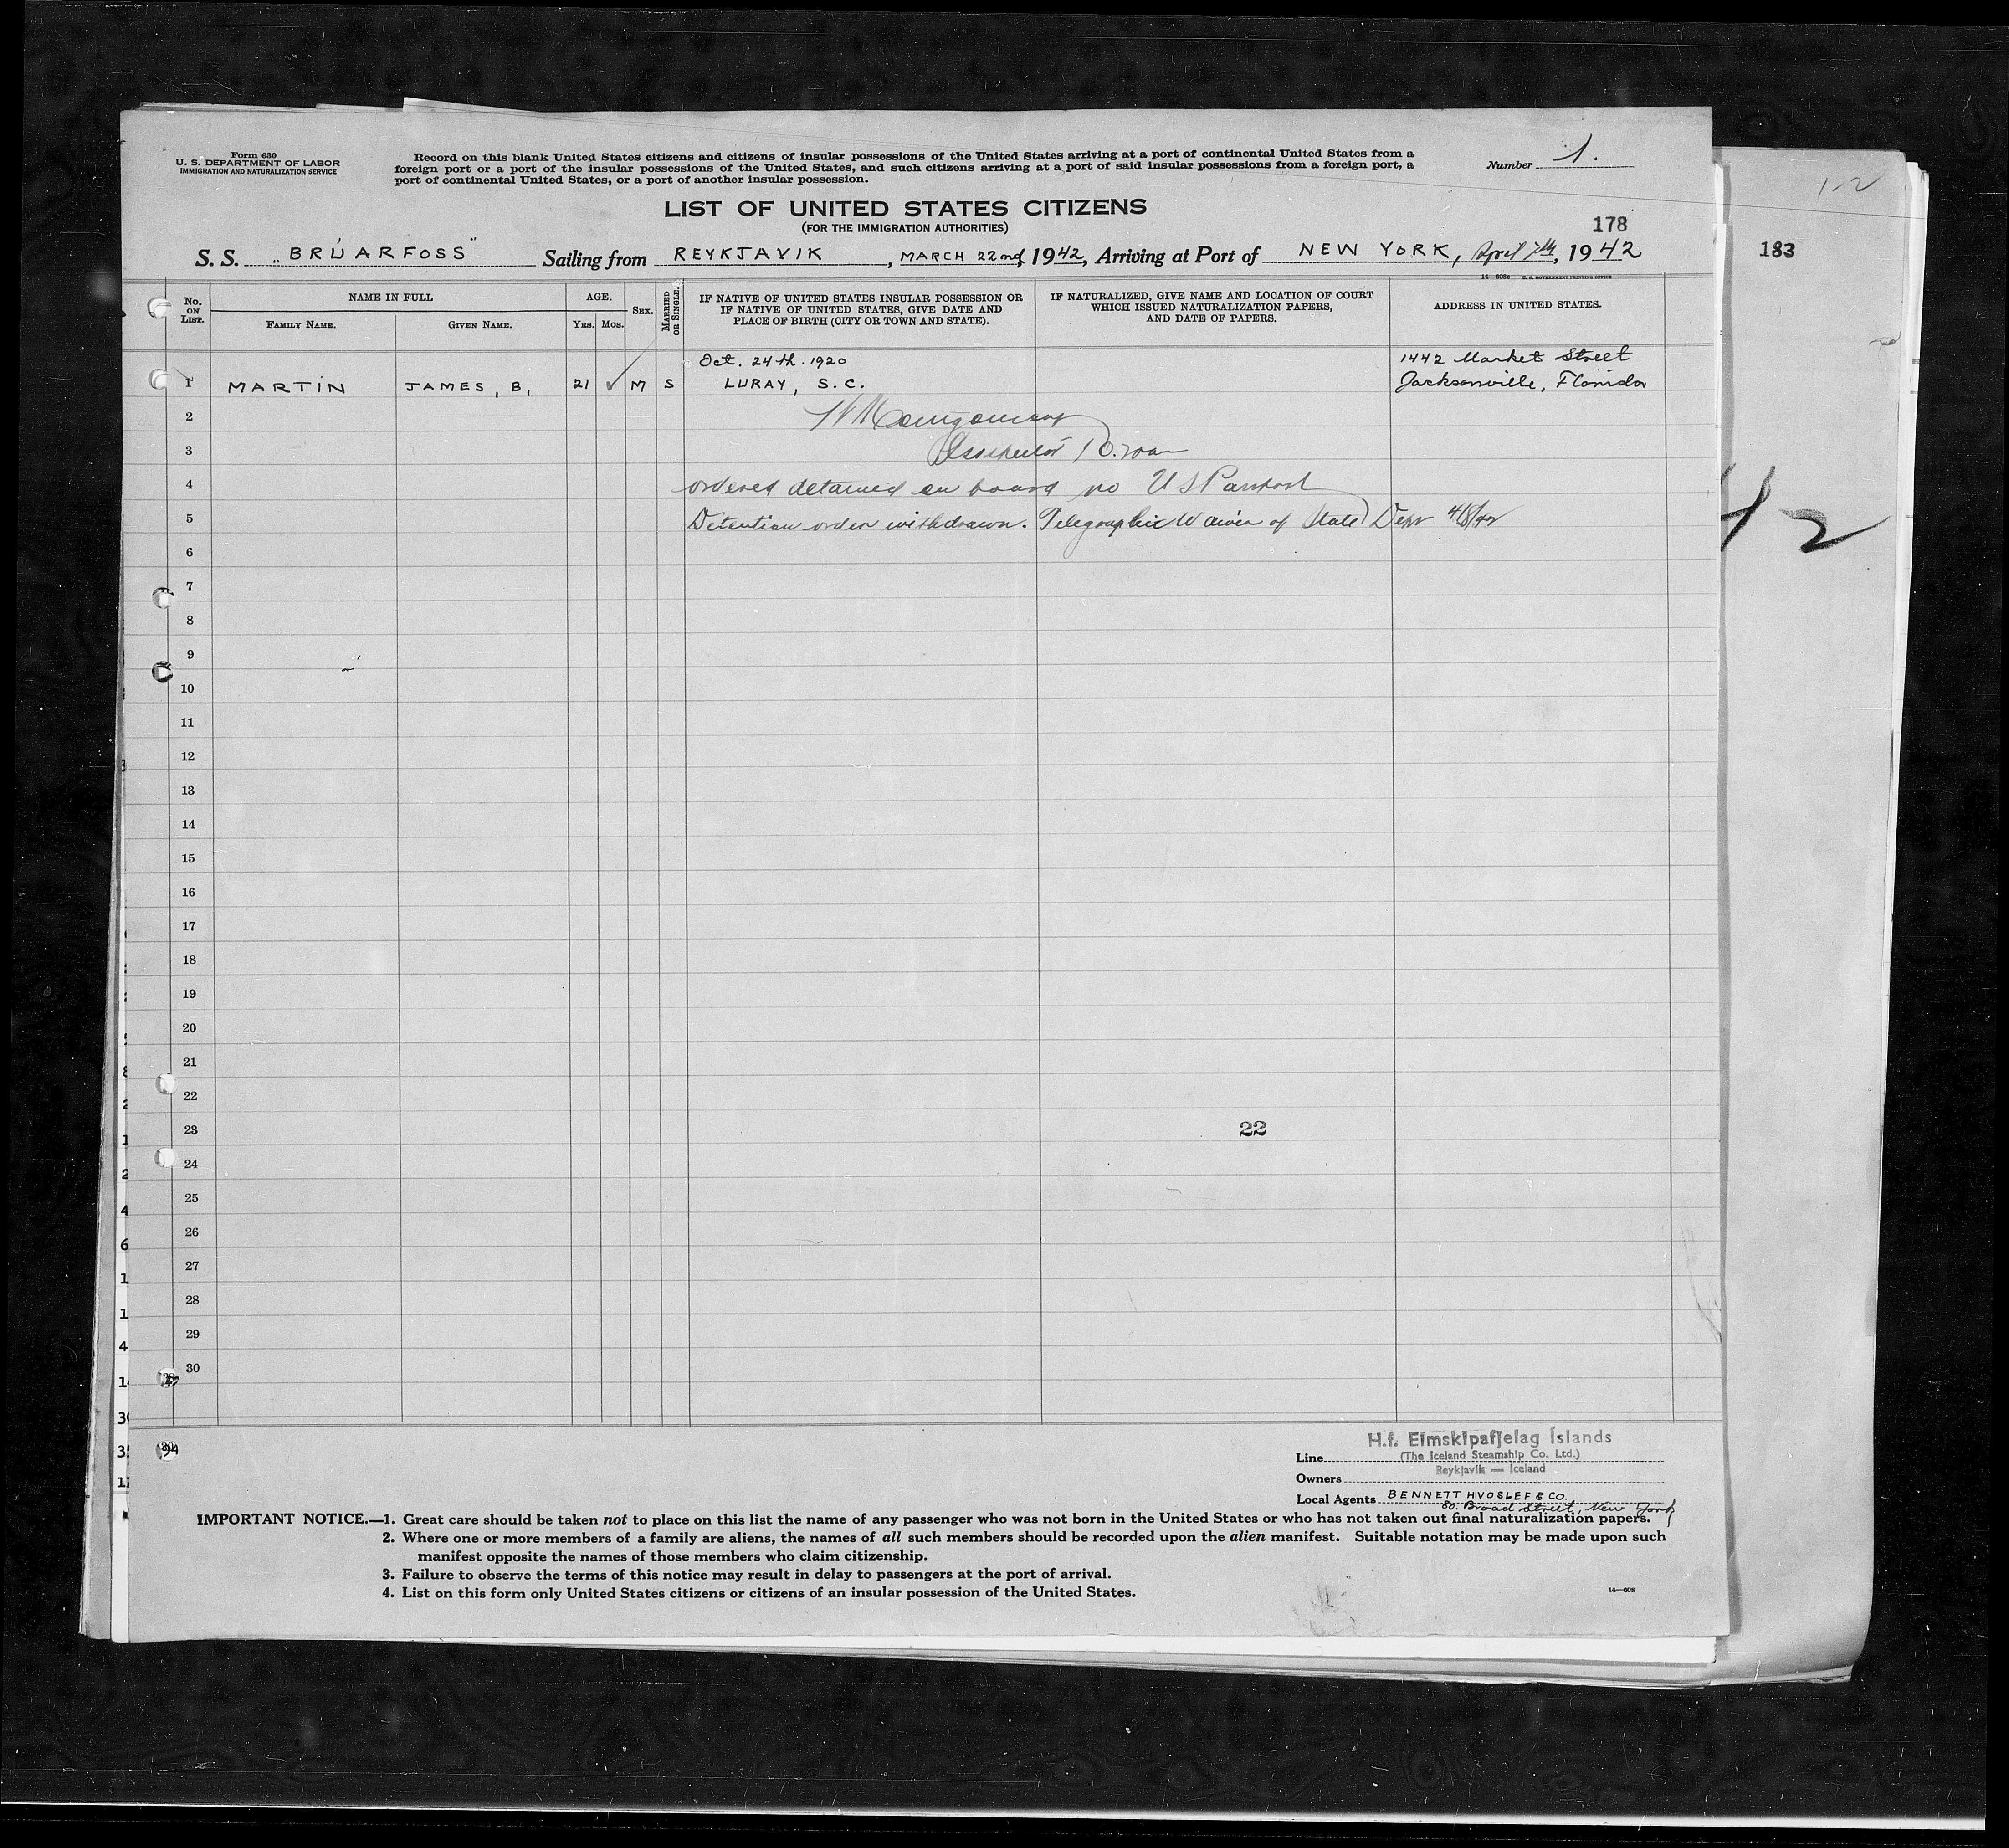 Form 630
U. S. DEPARTMENT OF LABOR
IMMIGRATION AND NATURALIZATION SERVICE
Record on this blank United States citizens and citizens of insular possessions of the United States arriving at a port of continental United States from a
foreign port or a port of the insular possessions of the United States, and such citizens arriving at a port of said insular possessions from a foreign port, a
port of continental United States, or a port of another insular possession.
Number 1.
1-2
LIST OF UNITED STATES CITIZENS
(FOR THE IMMIGRATION AUTHORITIES)
178
183
S. S. „BRÚARFOSS" Sailing from REYKJAVIK, MARCH 22nd, 1942, Arriving at Port of NEW YORK, April 7th, 1942
14—608c U. S. GOVERNMENT PRINTING OFFICE
No. ON LIST.
NAME IN FULL
FAMILY NAME. GIVEN NAME.
AGE.
YRS. MOS.
SEX.
MARRIED OR SINGLE.
IF NATIVE OF UNITED STATES INSULAR POSSESSION OR
IF NATIVE OF UNITED STATES, GIVE DATE AND
PLACE OF BIRTH (CITY OR TOWN AND STATE).
IF NATURALIZED, GIVE NAME AND LOCATION OF COURT
WHICH ISSUED NATURALIZATION PAPERS,
AND DATE OF PAPERS.
ADDRESS IN UNITED STATES.
Oct. 24th. 1920 1442 Market Street
1 MARTIN JAMES, B, 21 ✓ M S LURAY, S.C. Jacksonville, Florida
2
3 Inspector
4 ordered detained on board no US Passport
5 Detention order withdrawn. Telegraphic Waiver of State Dept 4/8/42
42
6
7
8
9
10
11
12
13
14
15
16
17
18
19
20
21
22
23 22
24
25
26
27
28
29
30
H.f. Eimskipafjelag Íslands
Line (The Iceland Steamship Co. Ltd.)
Owners Reykjavik — Iceland
Local Agents BENNETT HVOSLEF & CO.
80. Broad Street, New York
IMPORTANT NOTICE.—1. Great care should be taken not to place on this list the name of any passenger who was not born in the United States or who has not taken out final naturalization papers.
2. Where one or more members of a family are aliens, the names of all such members should be recorded upon the alien manifest. Suitable notation may be made upon such
manifest opposite the names of those members who claim citizenship.
3. Failure to observe the terms of this notice may result in delay to passengers at the port of arrival.
4. List on this form only United States citizens or citizens of an insular possession of the United States.
14—608